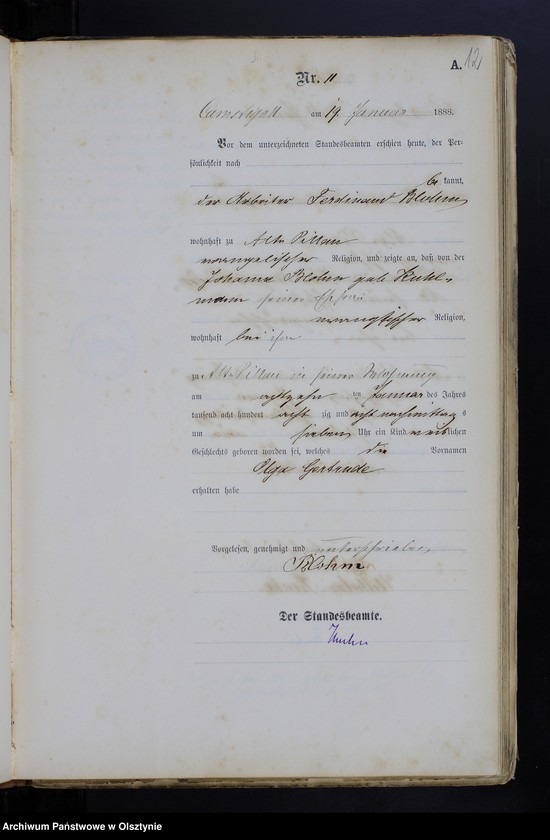 A. 12
Nr. 11
Camstigall am 19 Januar 1888.
Vor dem unterzeichneten Standesbeamten erschien heute, der Per-
sönlichkeit nach
be kannt,
der Arbeiter Ferdinand Blohm
wohnhaft zu Alt Pillau
evangelischer Religion, und zeigte an, daß von der
Johanna Blohm geb. Kuhl-
mann seiner Ehefrau
evangelischer Religion,
wohnhaft bei ihm
zu Alt Pillau in seiner Wohnung
am achtzehn ten Januar des Jahres
tausend acht hundert acht zig und acht nachmittag s
um sieben Uhr ein Kind weiblichen
Geschlechts geboren worden sei, welches die Vornamen
Olga Gertrude
erhalten habe
Vorgelesen, genehmigt und unterschrieben
Blohm
Der Standesbeamte.
Archiwum Państwowe w Olsztynie